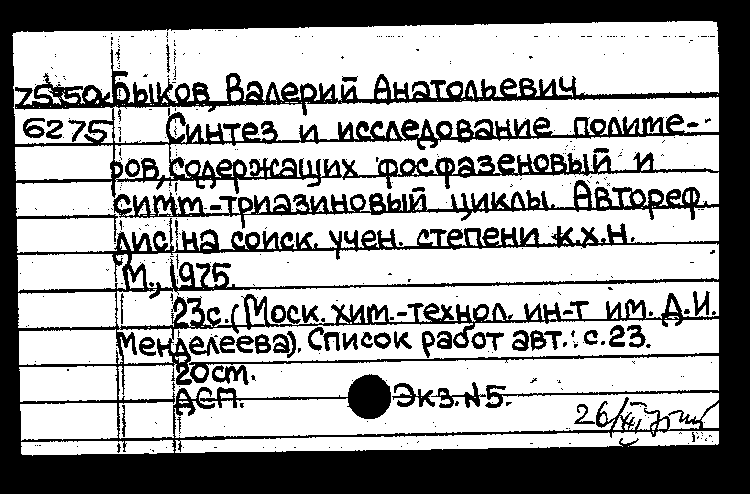 75-50а Быков, Валерий Анатольевич.
6275 Синтез и исследование полиме-
ров, содержащих фосфазеновый и
симм-триазиновый циклы. Автореф.
дис. на соиск. учен. степени к.х.н.
М., 1975.
23с. (Моск. хим.-технол. ин-т им. Д.И.
Менделеева). Список работ авт.: с.23.
20см.
ДСП. Экз. №5.
26/XII